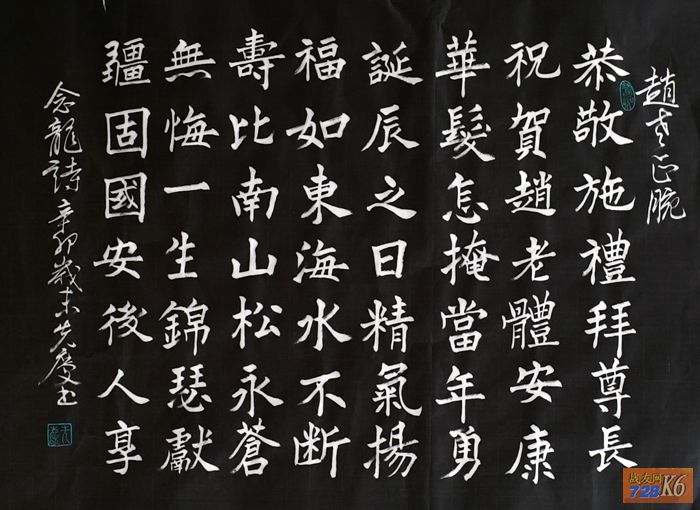 趙老正腕
恭敬施禮拜尊長
祝賀趙老體安康
華髮怎掩當年勇
誕辰之日精氣揚
福如東海水不断
壽比南山松永蒼
無悔一生錦瑟獻
疆固國安後人享
念龍詩 辛卯歲末先慶书
战友网
728K6